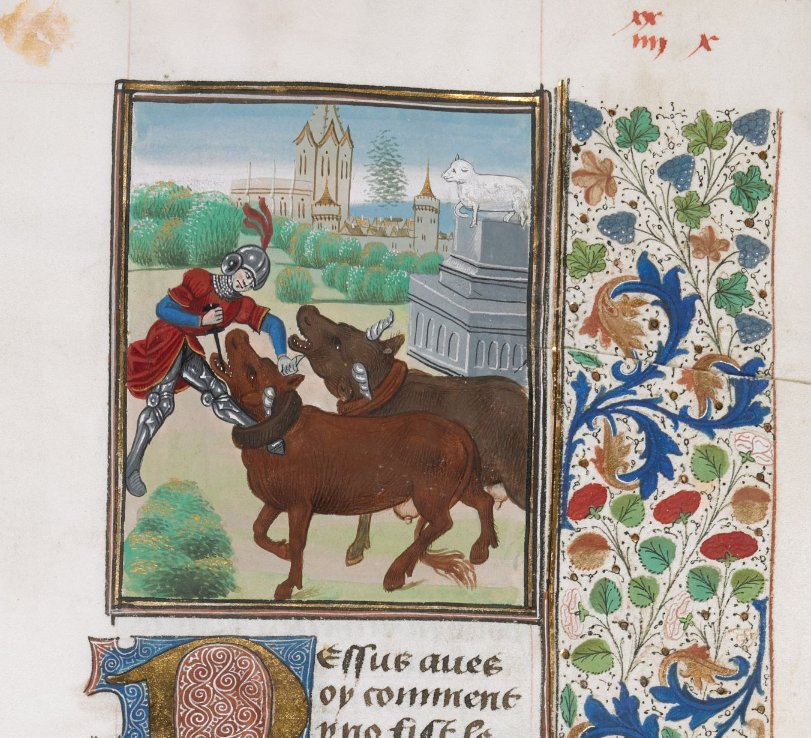 xx
iiii x
Dessus aues
oy comment
yno fist le